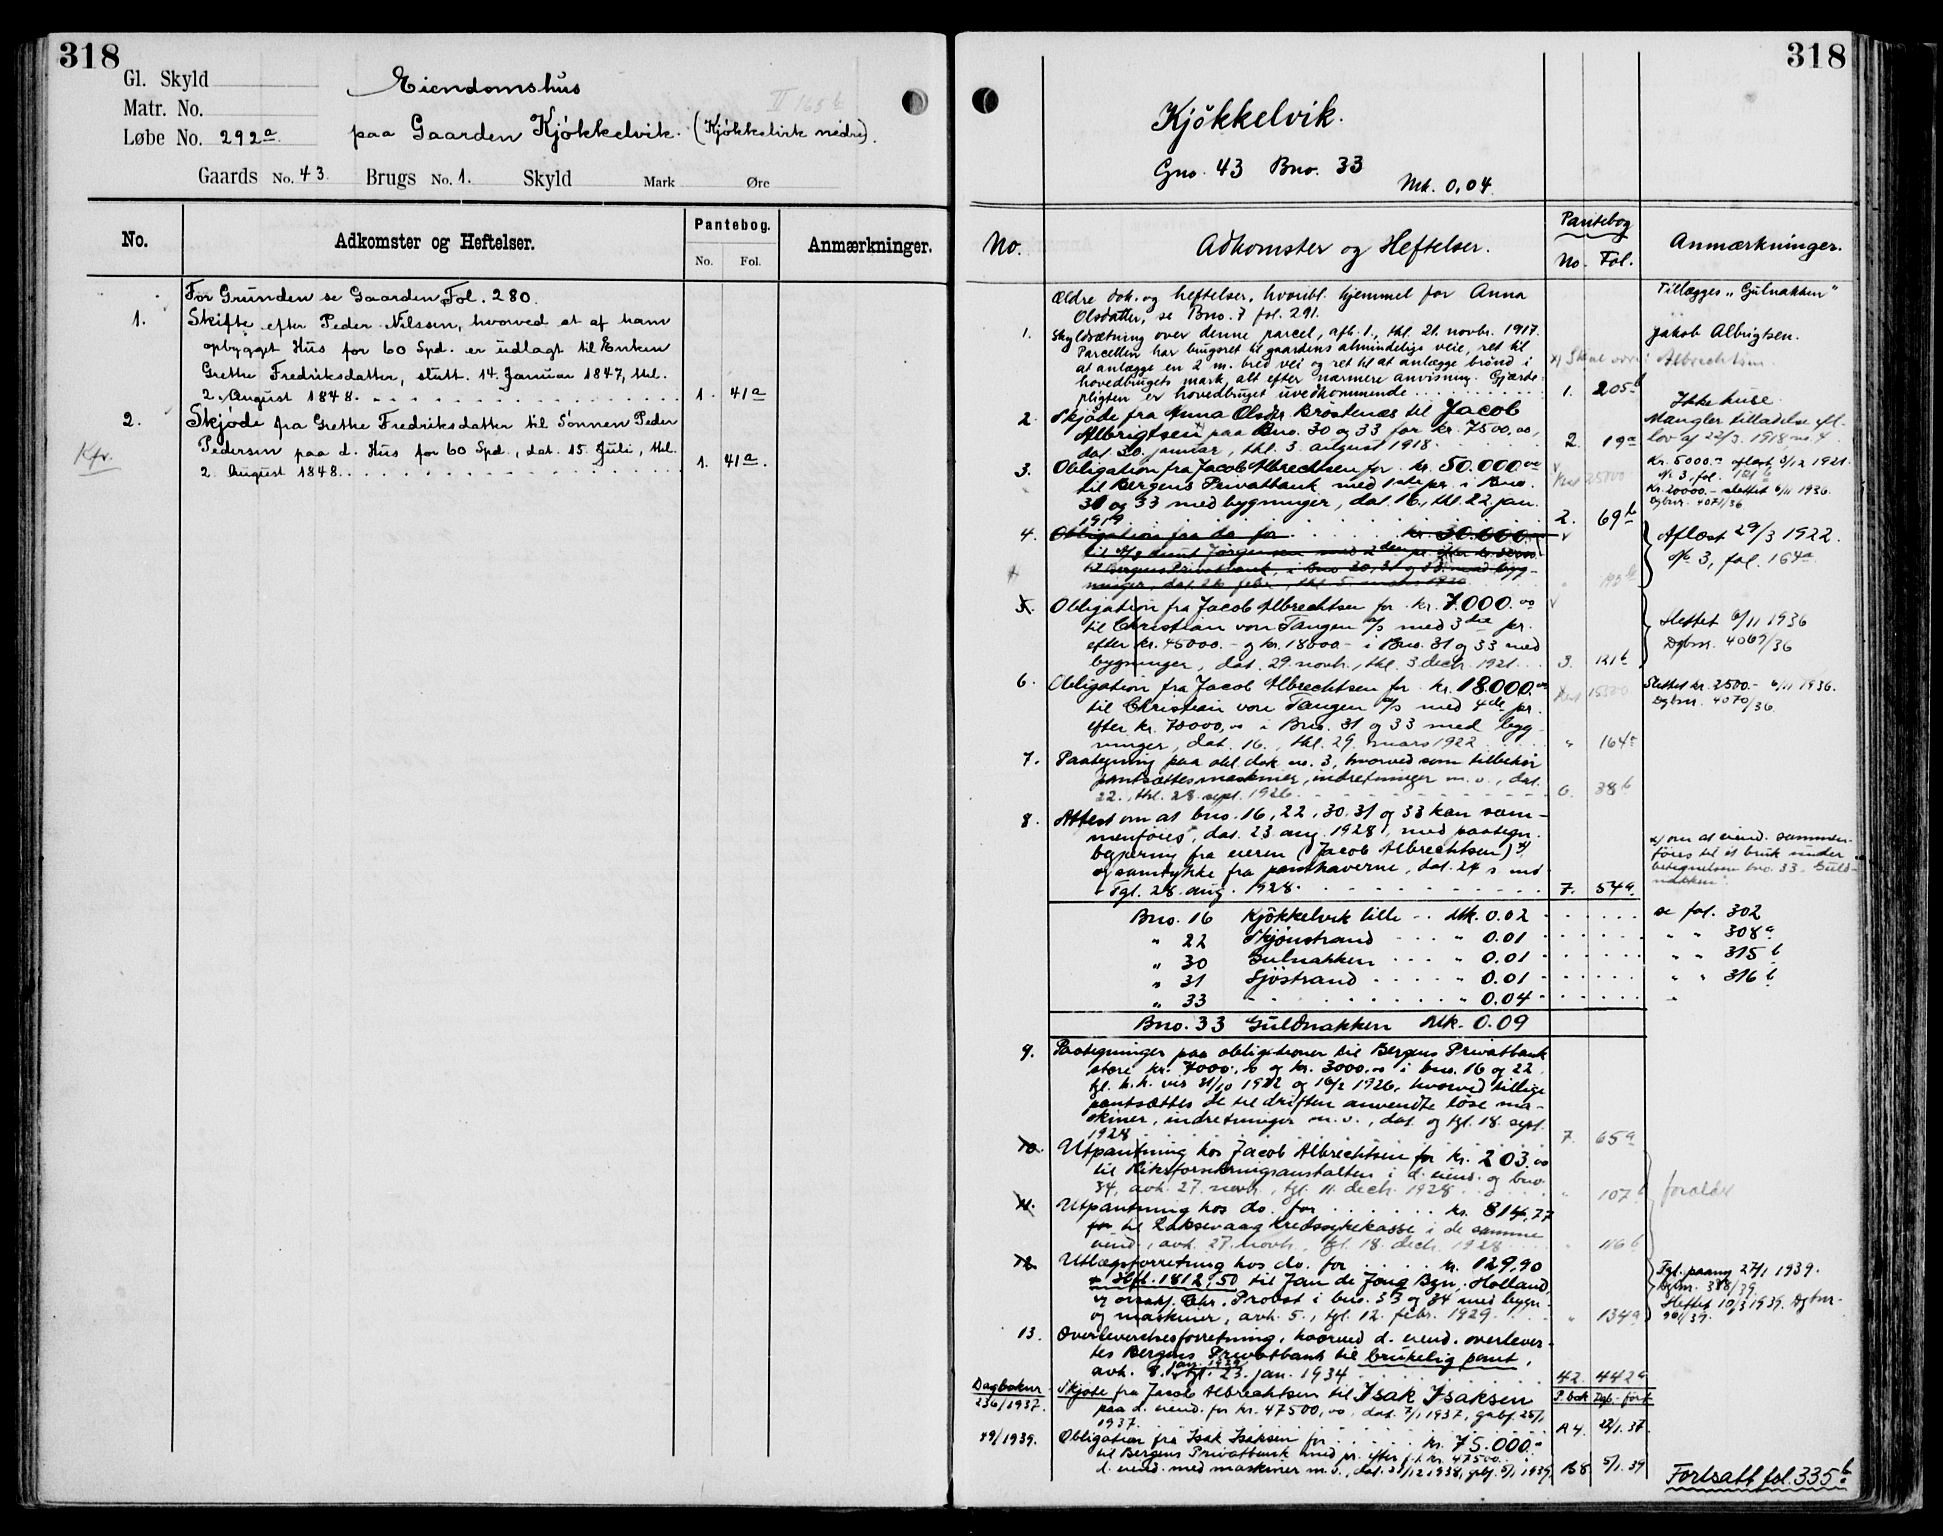 318
Gl. Skyld
Matr. No.
Løbe No. 292a
Eiendomshus
II 165 b
paa Gaarden Kjøkkelvik. (Kjøkkelvik nedre).
Gaards No. 43. Brugs No. 1. Skyld Mark Øre
No. Adkomster og Heftelser. Pantebog. No. Fol. Anmærkninger.
For Grunden se Gaarden, Fol. 280.
1. Skifte efter Peder Nilssen, hvorved et af ham
opbygget Hus for 60 Spd. er udlagt til Enken
Grethe Fredriksdatter, slutt. 14. Januar 1847, thl.
2. August 1848. 1. 41a
2. Skjøde fra Grethe Fredriksdatter til Sønnen Peder
Kfr. Pedersen paa d. Hus for 60 Spd., dat. 15. Juli, thl.
2. August 1848. 1. 41a.
318
Kjøkkelvik.
Gno. 43 Bno. 33 Mk. 0,04.
No. Adkomster og Heftelser. Pantebog No. Fol. Anmærkninger.
Ældre dok. og heftelser, hvoribl. hjemmel for Anna
Olsdatter, se Bno. 7 fol. 291.
Tillægges "Gulnakken"
1. Skyldsætning over denne parcel, afh. 1., thl. 21. novbr. 1917.
Jakob Albrigtsen.
Parcellen har brugsret til gaardens almindelige veie, ret til
x) Skal være: Albrechtsen
at anlægge en 2 m. bred vei og ret til at anlægge brønd i
hovedbrugets mark, alt efter nærmere anvisning. Gjærde-
pligten er hovedbruget uvedkommende. 1. 205b
Ikke huse.
2. Skjøde fra Anna Olsdtr. Brostenæs til Jacob
Albrigtsen x) paa Bno. 30 og 33 for kr. 7500,00,
dat. 30. januar, thl. 3. august 1918. 2. 19a
Mangler tilladelse efl.
lov af 22/3. 1918 no. 4.
3. Obligation fra Jacob Albrechtsen for kr. 50.000,00
til Bergens Privatbank med 1ste pr. i Bno.
31 og 33 med bygninger, dat. 16., thl. 22. jan.
1919 2. 69b
Rest 25000
Kr. 5000.- aflæst 3/12 1921.
No 3, fol. 121b
Kr. 20000.- slettet 6/11 1936.
Dgbnr. 4071/36
4. Obligation fra do for kr. 30.000,00
Aflæst 29/3 1922.
No 3, fol. 164a.
5. Obligation fra Jacob Albrechtsen for kr. 7.000,00
til Christian von Tangen A/S med 3die pr.
efter kr. 45000.- og kr. 18000.- i Bno. 31 og 33 med
bygninger, dat. 29. novbr., thl. 3. decbr. 1921. 3. 121b
Slettet 6/11 1936
Dgbnr. 4069/36
6. Obligation fra Jacob Albrechtsen for kr. 18.000,00
til Christian von Tangen A/S med 4de pr.
efter kr. 70000,00 i Bno. 31 og 33 med byg-
ninger, dat. 16., thl. 29. mars 1922 " 164a
Rest 15500
Slettet kr. 2500.- 6/11 1936.
Dgbnr. 4070/36.
7. Paategning paa obl. dok. no. 3, hvorved som tilbehør
pantsættes maskiner, indretninger m. v., dat.
22., thl. 28. sept. 1926. 6. 38b
8. Attest om at bno. 16, 22, 30, 31 og 33 kan sam-
menføies, dat. 23. aug. 1928, med paategn.
begjæring fra eieren (Jacob Albrechtsen) x)
og samtykke fra panthaverne, dat. 24 s. md
Tgl. 28. aug. 1928. 7. 54a
x) om at eiend. sammen-
føies til et bruk under
betegnelsen bno. 33 Guld-
nakken.
Bno. 16 Kjøkkelvik lille Mk. 0.02 se fol. 302
" 22 Skjønstrand " 0.01 " " 308a
" 30 Gulnakken " 0.01 " " 315b
" 31 Sjøstrand " 0.01 " " 316b
" 33 " 0.04 "
Bno. 33 Guldnakken Mk. 0.09
9. Paategninger paa obligationer til Bergens Privatbank
store kr. 7000,00 og kr. 3000,00 i bno. 16 og 22,
tgl. h.h. vis 31/10 1922 og 16/2 1926, hvorved tillige
pantsættes de til driften anvendte løse ma-
skiner, indretninger m. v., dat. og tgl. 18. sept.
1928 7. 65a
10. Utpantning hos Jacob Albrechtsen for kr. 203,00
til Riksforsikringsanstalten i d. eiend. og bno
34, avh. 27. novbr., tgl. 11. decbr. 1928 " 107b
foraldet
11. Utpantning hos do. for kr. 814,77
for til Laksevaag kredssykekasse i de samme
eiend., avh. 27. novbr., tgl. 18. decbr. 1928 " 116b
12. Utlægsforretning hos do. for kr. 129,90
+ Hfl. 1812,50 til Jan de Jong Bzn, Holland,
og omk. Chr. Probst i bno. 33 og 34 med bygn.
og maskiner, avh. 5., tgl. 12. febr. 1929. " 134a
Tgl. paany 27/1 1939.
Dgbnr. 388/39.
Slettet 10/3 1939. Dgbnr.
901/39.
13. Overleverelsesforretning, hvorved d. eiend. overlever-
tes Bergens Privatbank til brukelig pant,
avh. 8. jan. 1934, tgl. 23. jan. 1934. 42. 442a
P. bok Dgb.-ført
Dagboknr
236/1937. Skjøte fra Jacob Albrechtsen til Isak Isaksen
paa d. eiend. for kr. 47500,00, dat. 7/1 1937, gnbf. 25/1
1937. A 4. 22/1. 37.
49/1939. Obligation fra Isak Isaksen for kr. 75.000.-
til Bergens Privatbank med pr. efter kr. 47500.
i d. eiend. med maskiner m. v., dat. 31/12 1938, gnbf. 5/1 1939. B 8 5/1. 39
Fortsatt fol. 335b.